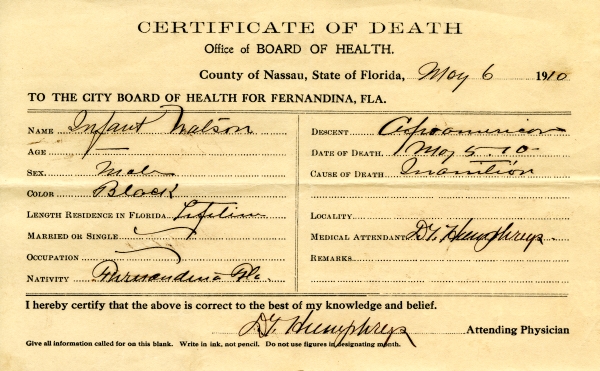 CERTIFICATE OF DEATH
Office of BOARD OF HEALTH.
County of Nassau, State of Florida, May 6 1910
TO THE CITY BOARD OF HEALTH FOR FERNANDINA, FLA.
NAME Infant Watson
AGE —
SEX. Male
COLOR Black
LENGTH RESIDENCE IN FLORIDA. Lifetime
MARRIED OR SINGLE
OCCUPATION
NATIVITY Fernandina Fla.
DESCENT Afroamerican
DATE OF DEATH. May 5.10
CAUSE OF DEATH Inanition
LOCALITY
MEDICAL ATTENDANT Humphreys.
REMARKS
I hereby certify that the above is correct to the best of my knowledge and belief.
Humphreys Attending Physician
Give all information called for on this blank. Write in ink, not pencil. Do not use figures in designating month.